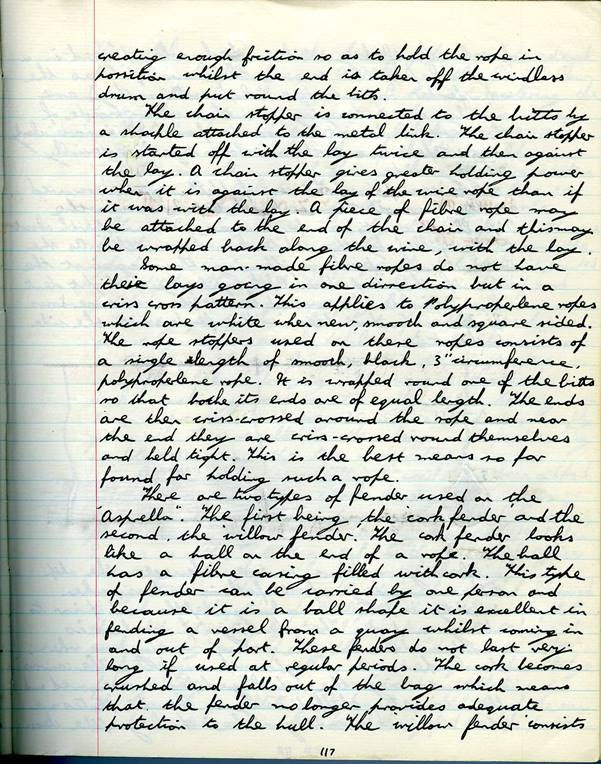 creating enough friction so as to hold the rope in
possition whilst the end is taken off the windlass
drum and put round the bits.
The chain stopper is connected to the bitts by
a shackle attached to the metal link. The chain stopper
is started off with the lay twice and then against
the lay. A chain stopper gives greater holding power
when it is against the lay of the wire rope than if
it was with the lay. A piece of fibre rope may
be attached to the end of the chain and this may
be wrapped back along the wire, with the lay.
Some man-made fibre ropes do not have
their lays going in one dirrection but in a
criss cross pattern. This applies to Polyproperlene ropes
which are white when new, smooth and square sided.
The rope stoppers used on these ropes consists of
a single length of smooth, black, 3" circumference,
polypropelene rope. It is wrapped round one of the bitts
so that bothe its ends are of equal length. The ends
are then criss-crossed around the rope and near
the end they are criss-crossed round themselves
and held tight. This is the best means so far
found for holding such a rope.
There are two types of fender used on the
"Asprella". The first being the 'cork fender' and the
second, the willow fender. The cork fender looks
like a ball on the end of a rope. The ball
has a fibre casing filled with cork. This type
of fender can be carried by one person and
because it is a ball shape it is excellent in
fending a vessel from a quay whilst coming in
and out of port. These fenders do not last very
long if used at regular periods. The cork becomes
crushed and falls out of the bag which means
that the fender no longer provides adequate
protection to the hull. The 'willow fender' consists
117